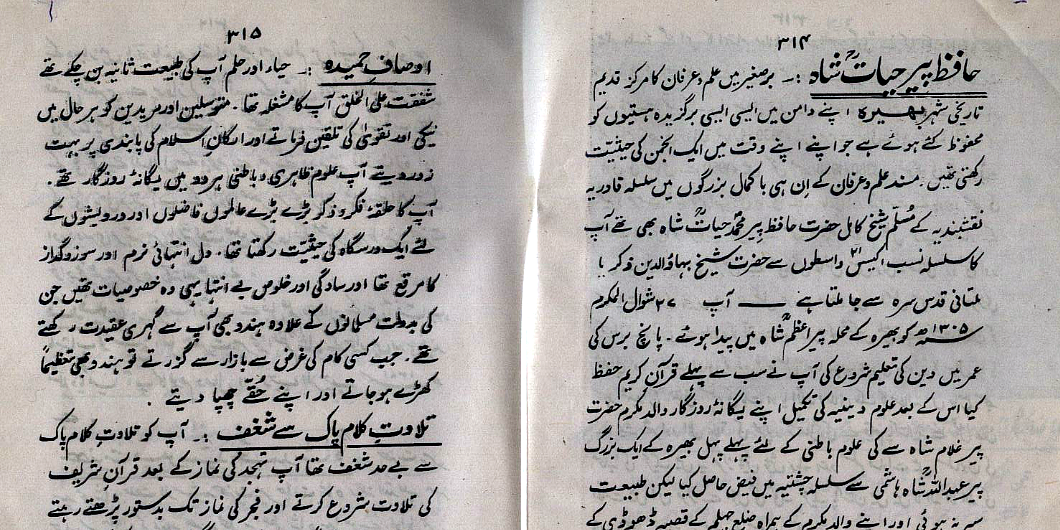 ۳۱۴
حافظ پیر حیاتؒ شاہ :۔ برصغیر میں علم و عرفان کا مرکز قدیم
تاریخی شہر بھیرہ اپنے دامن میں ایسی ایسی برگزیدہ ہستیوں کو
محفوظ کئے ہوئے ہے جو اپنے اپنے وقت میں ایک انجمن کی حیثیت
رکھتی تھیں۔ مسند علم و عرفان کے ان ہی با کمال بزرگوں میں سلسلہ قادریہ
نقشبندیہ کے مُسلّم شیخ کامل حضرت حافظ پیر محمد حیاتؒ شاہ بھی تھے آپ
کا سلسلہ نسب اکیس ۲۱ واسطوں سے حضرت شیخ بہاؤالدین ذکریا
ملتانی قدس سرہ سے جا ملتا ہے ۔ آپ ۲۷ شوال المکرم
۱۳۰۵ھ کو بھیرہ کے محلہ پیر اعظم شاہؒ میں پیدا ہوئے ۔ پانچ برس کی
عمر میں دین کی تعلیم شروع کی آپ نے سب سے پہلے قرآن کریم حفظ
کیا اس کے بعد علوم دینیہ کی تکمیل اپنے یگانۂ روزگار والد مکرم حضرت
پیر غلام شاہ سے کی علوم باطنی کے لئے پہلے پہل بھیرہ کے ایک بزرگ
پیر عبداللہ شاہؒ ہاشمی سے سلسلہ چشتیہ میں فیض حاصل کیا لیکن طبیعت
سیر نہ ہوئی اور اپنے والد مکرم کے ہمراہ ضلع جہلم کے قصبہ ڈھوڈی کے
۳۱۵
اوصافِ حمیدہ :۔ حیاء اور حلم آپ کی طبیعت ثانیہ بن چکے تھے
شفقت علی الخلق آپ کا مشغلہ تھا۔ متوسلین اور مریدین کو ہر حال میں
نیکی اور تقویٰ کی تلقین فرماتے اور ارکانِ اسلام کی پابندی پر بہت
زور دیتے آپ علوم ظاہری و باطنی ہر دو میں یگانۂ روزگار تھے۔
آپ کا حلقۂ فکر و ذکر بڑے بڑے عالموں فاضلوں اور درویشوں کے
لئے ایک درسگاہ کی حیثیت رکھتا تھا۔ دل انتہائی نرم اور سوز و گداز
کا مرقع تھا اور سادگی اور خلوص بے انتہا یہی وہ خصوصیات تھیں جن
کی بدولت مسلمانوں کے علاوہ ہندو بھی آپ سے گہری عقیدت رکھتے
تھے۔ جب کسی کام کی غرض سے بازار سے گزرتے تو ہندو بھی تعظیماً
کھڑے ہو جاتے اور اپنے حُقّے چھپا دیتے ۔
تلاوتِ کلام پاک سے شغف :۔ آپ کو تلاوتِ کلام پاک
سے بے حد شغف تھا آپ تہجد کی نماز کے بعد قرآن شریف
کی تلاوت شروع کرتے اور فجر کی نماز تک بدستور پڑھتے رہتے